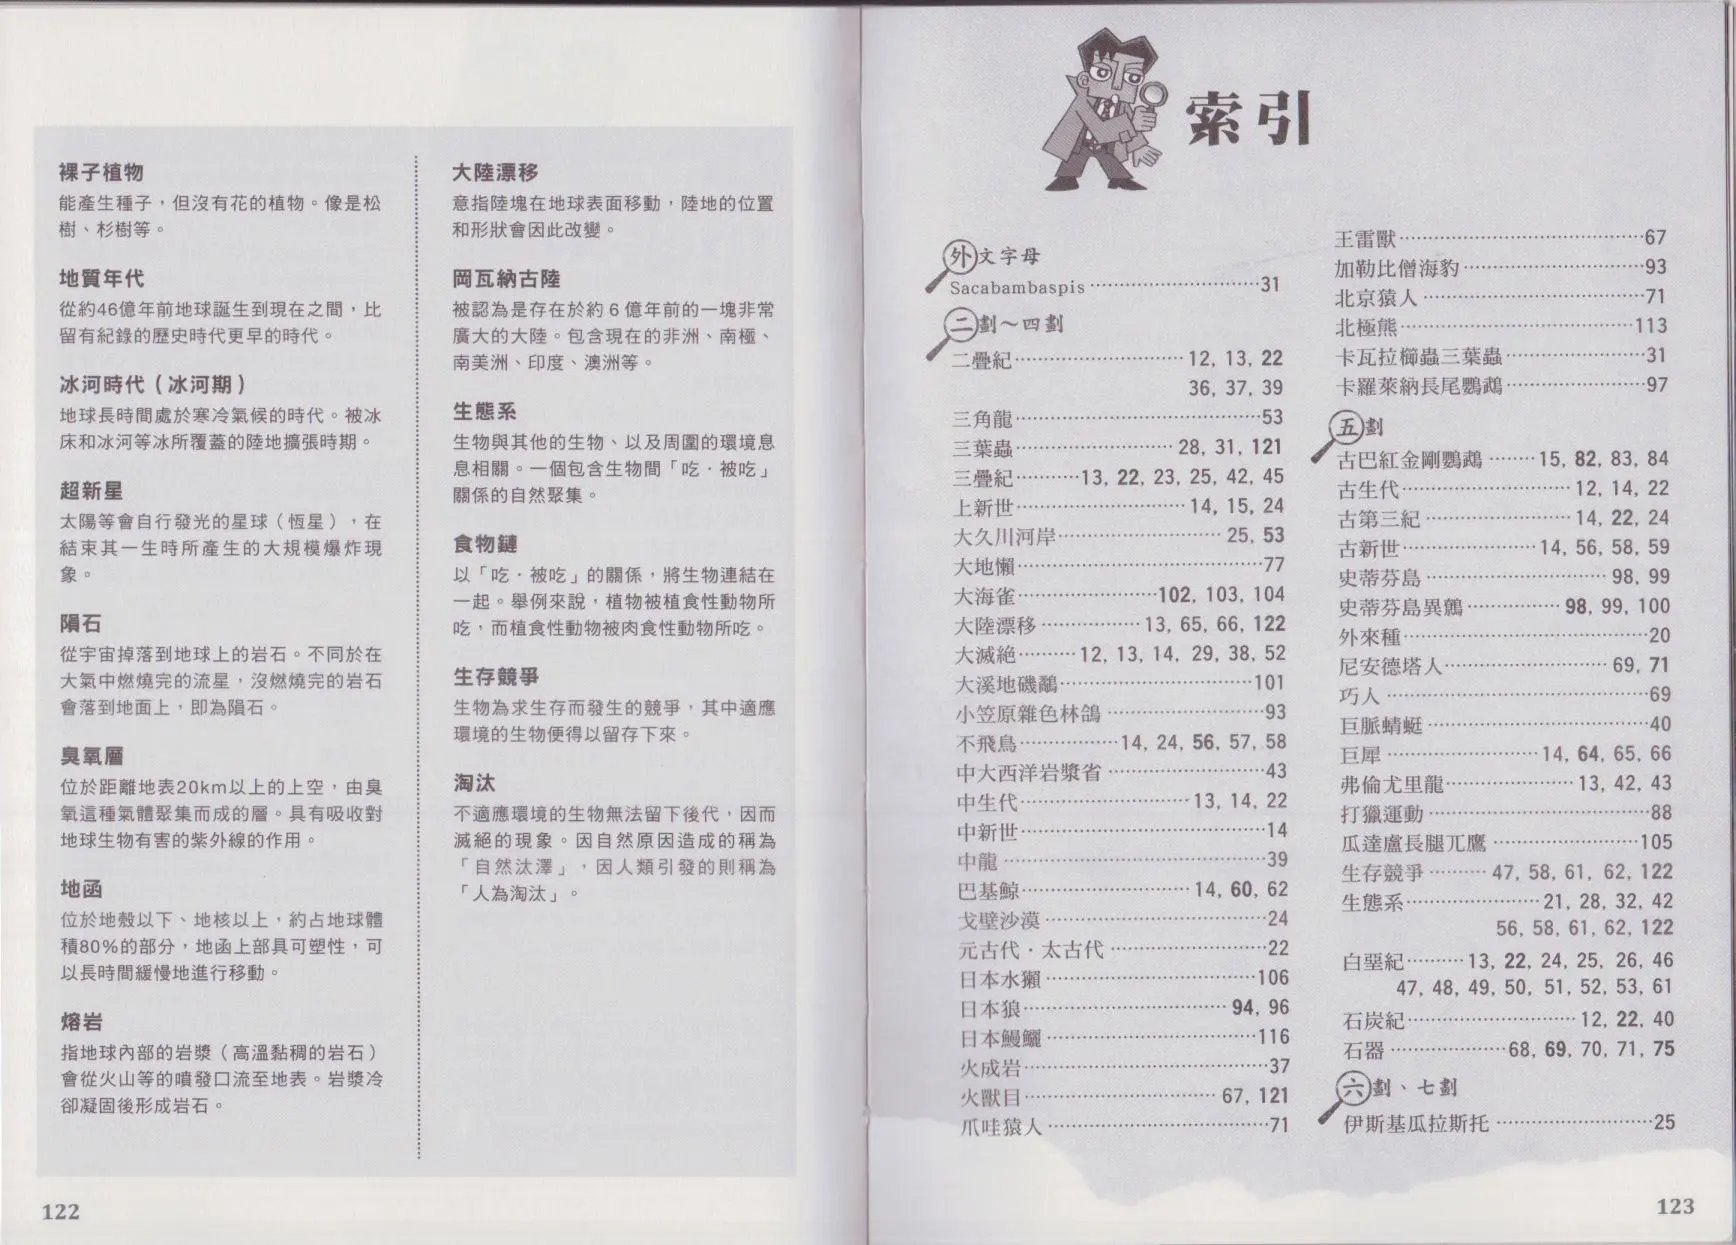 裸子植物
能產生種子，但沒有花的植物。像是松
樹、杉樹等。
地質年代
從約46億年前地球誕生到現在之間，比
留有紀錄的歷史時代更早的時代。
冰河時代（冰河期）
地球長時間處於寒冷氣候的時代。被冰
床和冰河等冰所覆蓋的陸地擴張時期。
超新星
太陽等會自行發光的星球（恆星），在
結束其一生時所產生的大規模爆炸現
象。
隕石
從宇宙掉落到地球上的岩石。不同於在
大氣中燃燒完的流星，沒燃燒完的岩石
會落到地面上，即為隕石。
臭氧層
位於距離地表20km以上的上空，由臭
氧這種氣體聚集而成的層。具有吸收對
地球生物有害的紫外線的作用。
地函
位於地殼以下、地核以上，約占地球體
積80%的部分，地函上部具可塑性，可
以長時間緩慢地進行移動。
熔岩
指地球內部的岩漿（高溫黏稠的岩石）
會從火山等的噴發口流至地表。岩漿冷
卻凝固後形成岩石。
大陸漂移
意指陸塊在地球表面移動，陸地的位置
和形狀會因此改變。
岡瓦納古陸
被認為是存在於約6億年前的一塊非常
廣大的大陸。包含現在的非洲、南極、
南美洲、印度、澳洲等。
生態系
生物與其他的生物、以及周圍的環境息
息相關。一個包含生物間「吃．被吃」
關係的自然聚集。
食物鏈
以「吃．被吃」的關係，將生物連結在
一起。舉例來說，植物被植食性動物所
吃，而植食性動物被肉食性動物所吃。
生存競爭
生物為求生存而發生的競爭，其中適應
環境的生物便得以留存下來。
淘汰
不適應環境的生物無法留下後代，因而
滅絕的現象。因自然原因造成的稱為
「自然汰澤」，因人類引發的則稱為
「人為淘汰」。
122
索引
外文字母
Sacabambaspis……31
二劃～四劃
二疊紀……12, 13, 22
36, 37, 39
三角龍……53
三葉蟲……28, 31, 121
三疊紀……13, 22, 23, 25, 42, 45
上新世……14, 15, 24
大久川河岸……25, 53
大地懶……77
大海雀……102, 103, 104
大陸漂移……13, 65, 66, 122
大滅絕……12, 13, 14, 29, 38, 52
大溪地磯鷸……101
小笠原雜色林鴿……93
不飛鳥……14, 24, 56, 57, 58
中大西洋岩漿省……43
中生代……13, 14, 22
中新世……14
中龍……39
巴基鯨……14, 60, 62
戈壁沙漠……24
元古代．太古代……22
日本水獺……106
日本狼……94, 96
日本鰻鱺……116
火成岩……37
火獸目……67, 121
爪哇猿人……71
王雷獸……67
加勒比僧海豹……93
北京猿人……71
北極熊……113
卡瓦拉櫛蟲三葉蟲……31
卡羅萊納長尾鸚鵡……97
五劃
古巴紅金剛鸚鵡……15, 82, 83, 84
古生代……12, 14, 22
古第三紀……14, 22, 24
古新世……14, 56, 58, 59
史蒂芬島……98, 99
史蒂芬島異鷯……98, 99, 100
外來種……20
尼安德塔人……69, 71
巧人……69
巨脈蜻蜓……40
巨犀……14, 64, 65, 66
弗倫尤里龍……13, 42, 43
打獵運動……88
瓜達盧長腿兀鷹……105
生存競爭……47, 58, 61, 62, 122
生態系……21, 28, 32, 42
56, 58, 61, 62, 122
白堊紀……13, 22, 24, 25, 26, 46
47, 48, 49, 50, 51, 52, 53, 61
石炭紀……12, 22, 40
石器……68, 69, 70, 71, 75
六劃、七劃
伊斯基瓜拉斯托……25
123